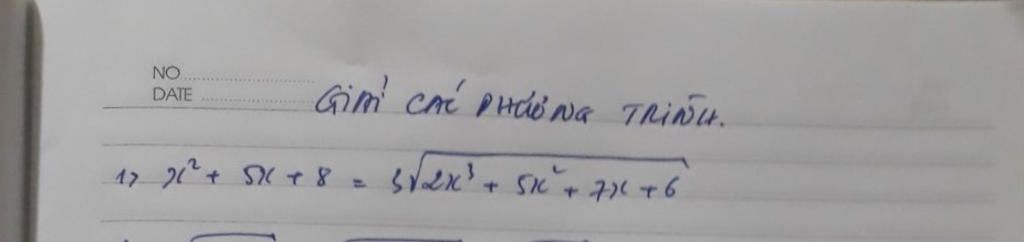 NO
DATE
GIẢI CÁC PHƯƠNG TRÌNH.
1> x² + 5x + 8 = 3√2x³ + 5x² + 7x + 6